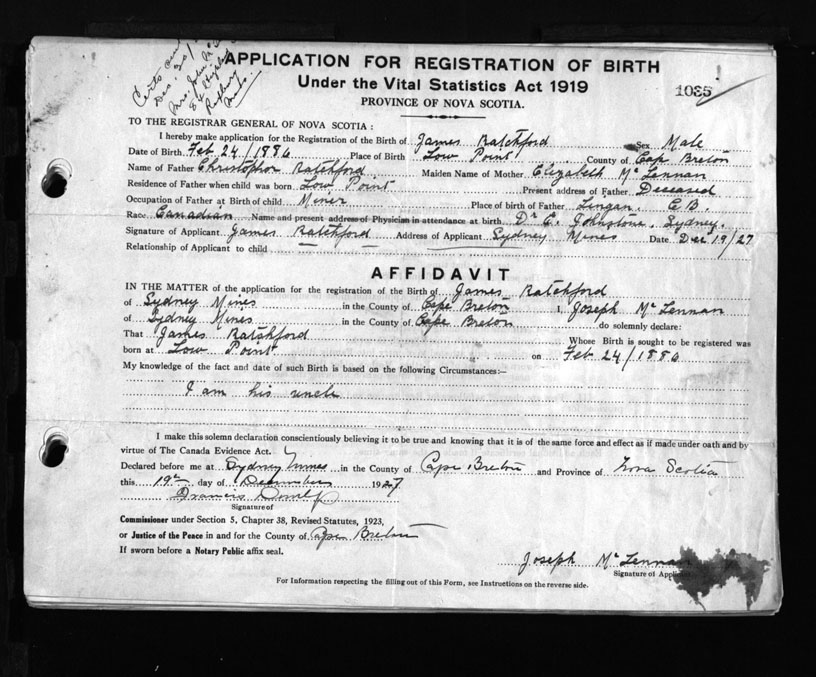 Certs
Dec. 30/
Mrs. John Mc
APPLICATION FOR REGISTRATION OF BIRTH
Under the Vital Statistics Act 1919
1035
PROVINCE OF NOVA SCOTIA.
TO THE REGISTRAR GENERAL OF NOVA SCOTIA:
I hereby make application for the Registration of the Birth of James Ratchford Sex Male
Date of Birth Feb 24/1886 Place of Birth Low Point County of Cape Breton
Name of Father Christopher Ratchford Maiden Name of Mother Elizabeth McLennan
Residence of Father when child was born Low Point Present address of Father Deceased
Occupation of Father at Birth of child Miner Place of birth of Father Lingan, C.B.
Race Canadian Name and present address of Physician in attendance at birth Dr C. Johnstone, Sydney.
Signature of Applicant James Ratchford Address of Applicant Sydney Mines Date Dec 19/27
Relationship of Applicant to child — —
AFFIDAVIT
IN THE MATTER of the application for the registration of the Birth of James Ratchford
of Sydney Mines in the County of Cape Breton I, Joseph McLennan
of Sydney Mines in the County of Cape Breton do solemnly declare:
That James Ratchford Whose Birth is sought to be registered was
born at Low Point on Feb 24/1886
My knowledge of the fact and date of such Birth is based on the following Circumstances:—
I am his uncle
I make this solemn declaration conscientiously believing it to be true and knowing that it is of the same force and effect as if made under oath and by
virtue of The Canada Evidence Act.
Declared before me at Sydney Mines in the County of Cape Breton and Province of Nova Scotia
this 19th day of December 1927
Francis
Signature of
Commissioner under Section 5, Chapter 38, Revised Statutes, 1923,
or Justice of the Peace in and for the County of Cape Breton
If sworn before a Notary Public affix seal.
Joseph McLennan
Signature of Applicant
For Information respecting the filling out of this Form, see Instructions on the reverse side.